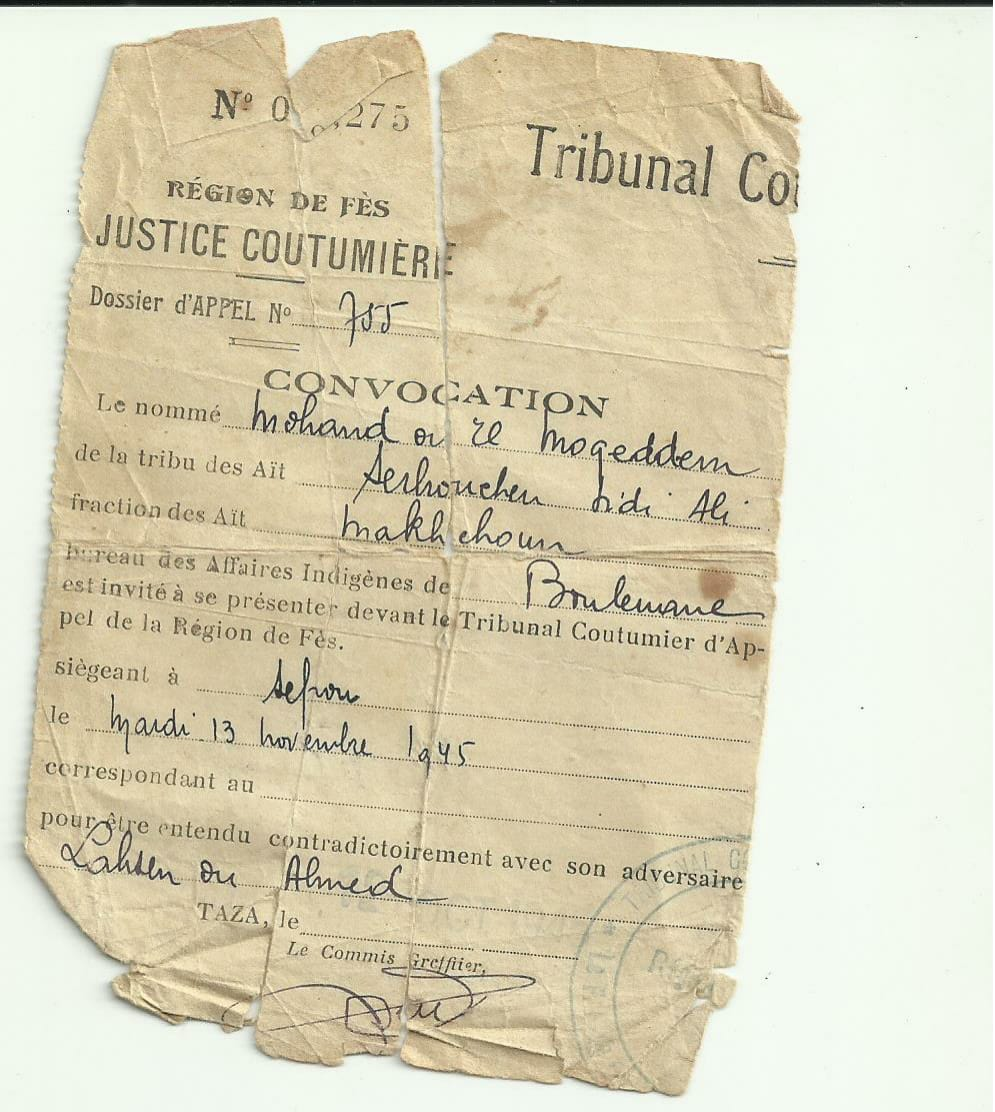 Nº 0 275
Tribunal Co
RÉGION DE FÈS
JUSTICE COUTUMIÈRE
Dossier d'APPEL Nº 755
CONVOCATION
Le nommé Mohand ou El Mogeddem
de la tribu des Aït Serhouchen Sidi Ali
fraction des Aït Makhchoun
bureau des Affaires Indigènes de Boulemane
est invité à se présenter devant le Tribunal Coutumier d'Ap-
pel de la Région de Fès.
siègeant à Sefrou
le Mardi 13 novembre 1945
correspondant au
pour être entendu contradictoirement avec son adversaire
Lahsen ou Ahmed
TAZA, le
Le Commis Greffier,
TRIBUNAL C